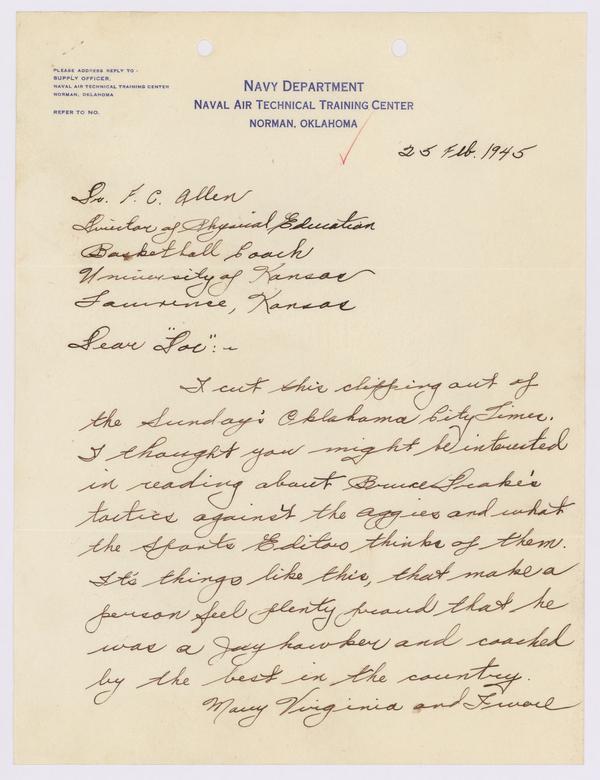 PLEASE ADDRESS REPLY TO -
SUPPLY OFFICER,
NAVAL AIR TECHNICAL TRAINING CENTER
NORMAN, OKLAHOMA
REFER TO NO.
NAVY DEPARTMENT
NAVAL AIR TECHNICAL TRAINING CENTER
NORMAN, OKLAHOMA
25 Feb. 1945
Dr. F. C. Allen
Director of Physical Education
Basketball Coach
University of Kansas
Lawrence, Kansas
Dear "Doc":-
I cut this clipping out of
the Sunday's Oklahoma City Times.
I thought you might be interested
in reading about Bruce Drake's
tactics against the Aggies and what
the Sports Editors thinks of them.
It's things like this, that make a
person feel plenty proud that he
was a Jayhawker and coached
by the best in the country.
Mary Virginia and I were